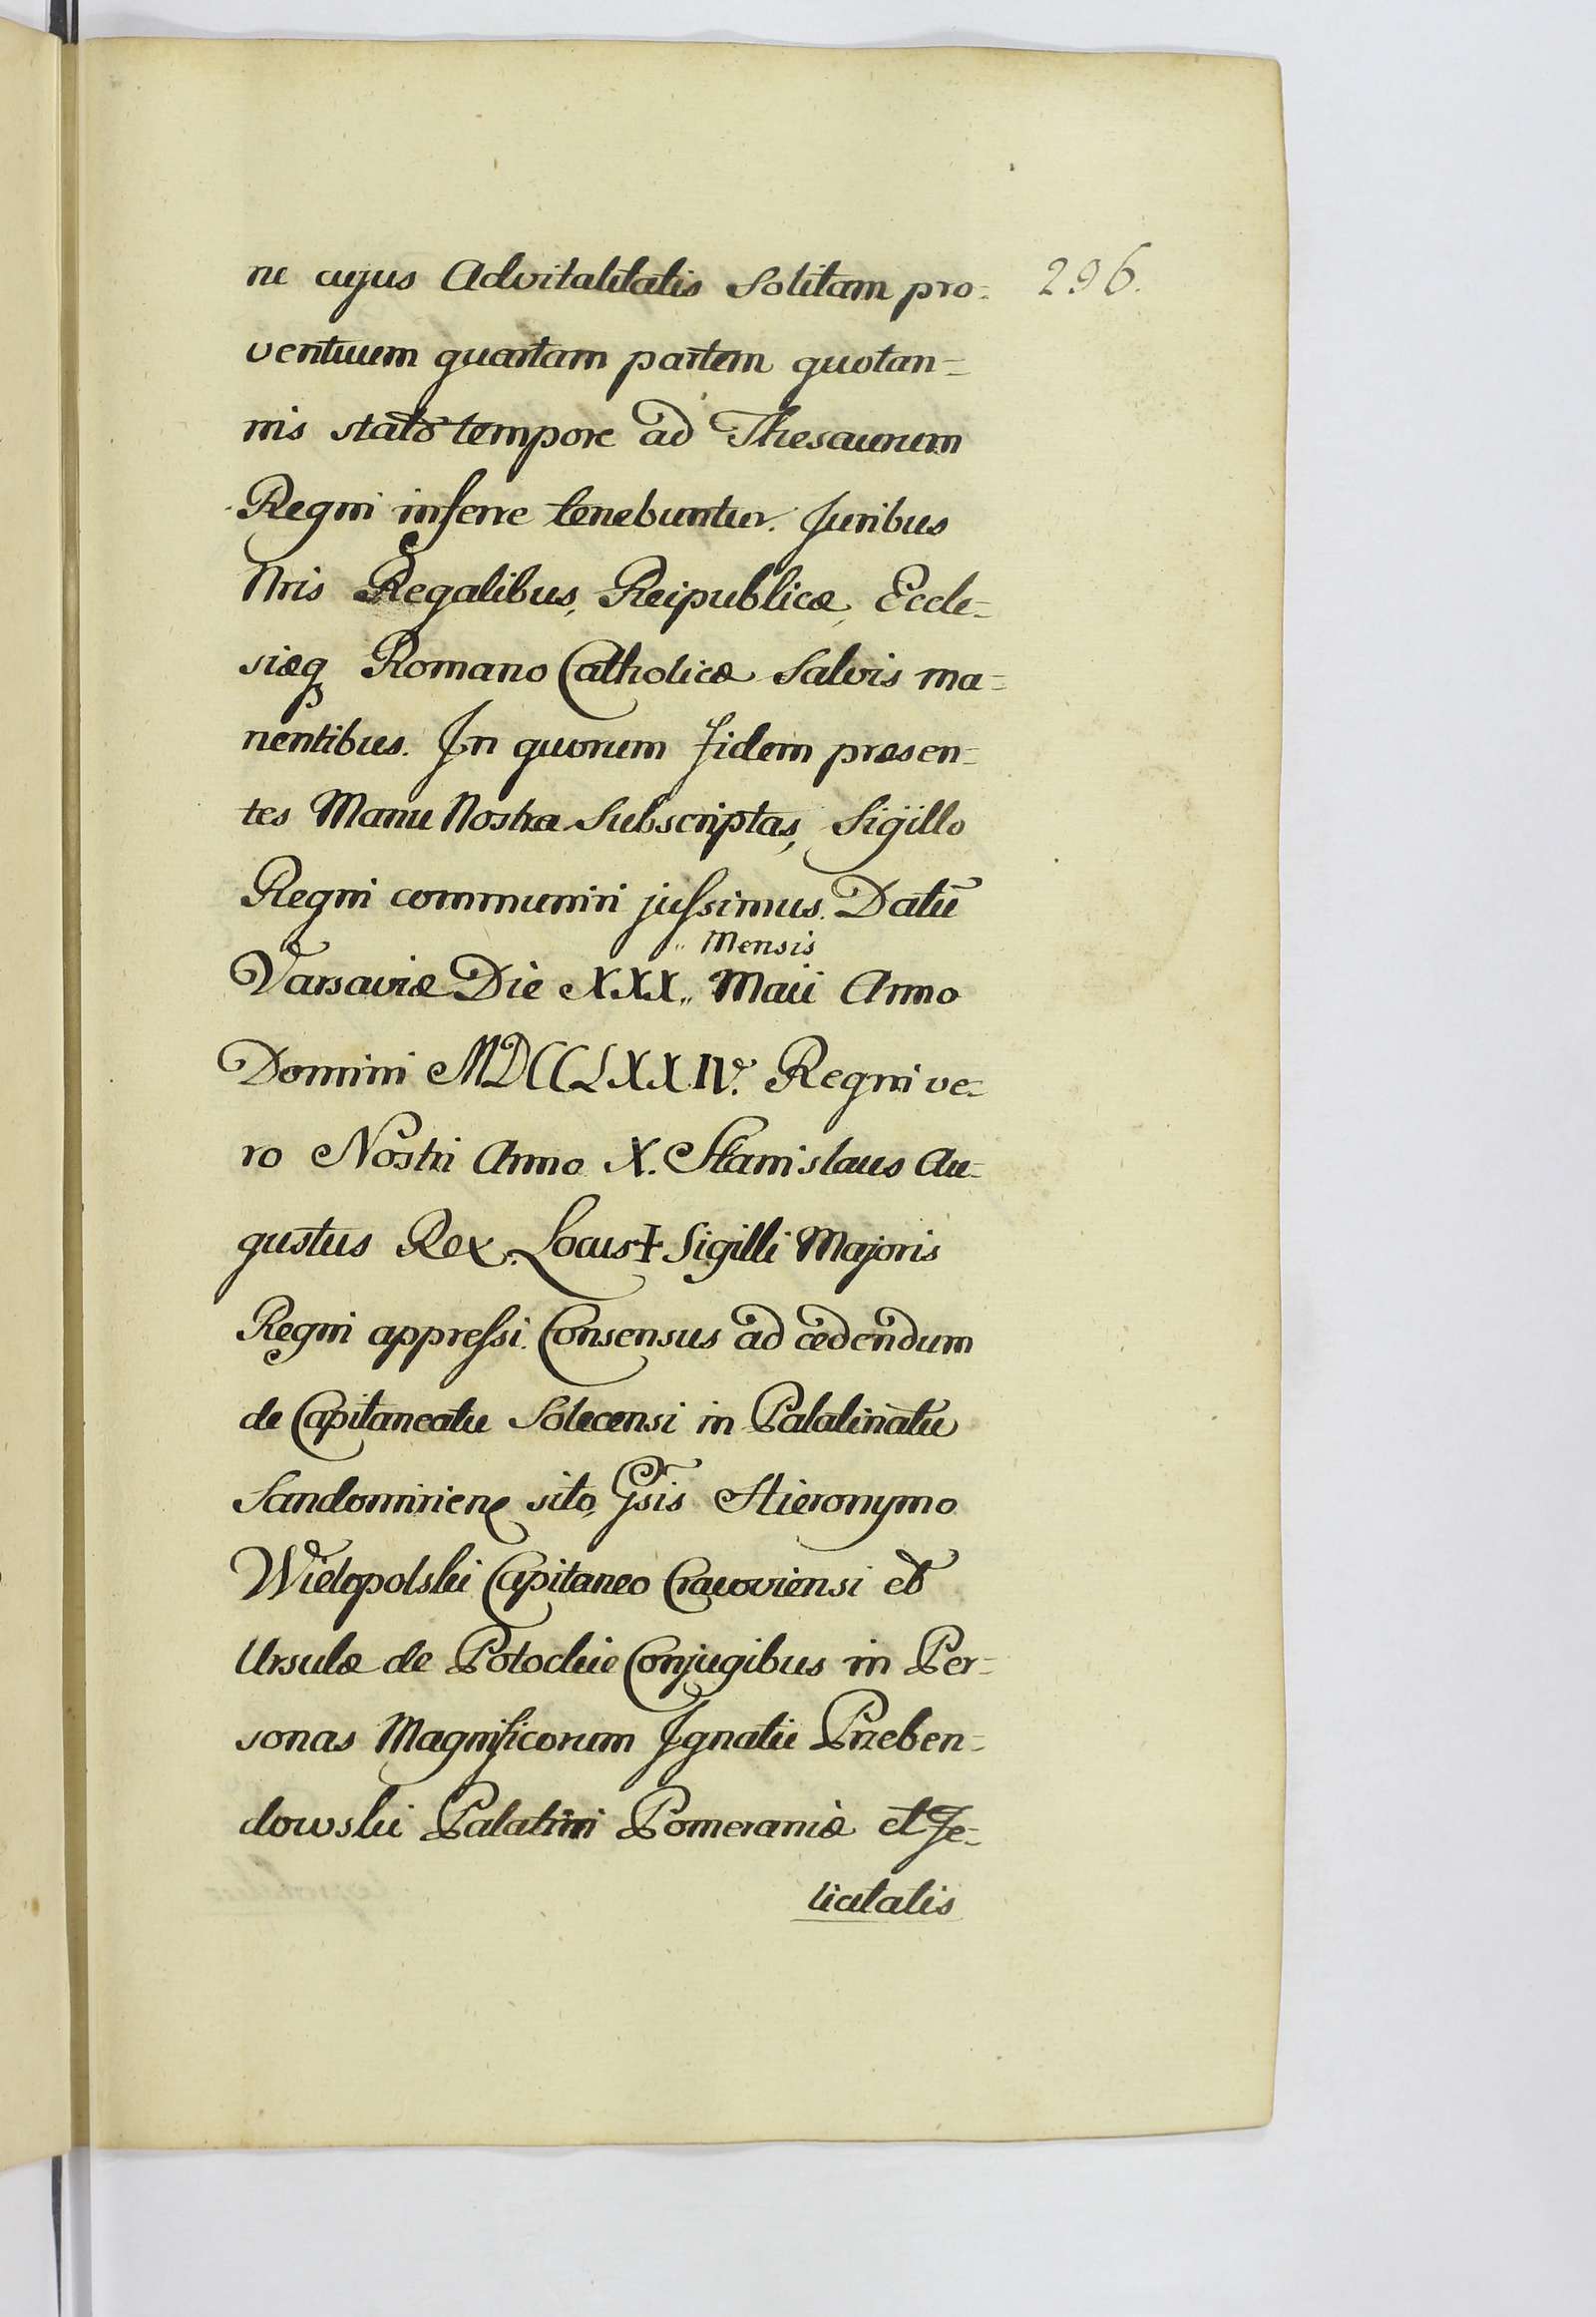 ne cujus Advitalitatis Solitam pro= 296.
ventuum quartam partem quotan=
nis stato tempore ad Thesaurum
Regni inferre tenebuntur. Juribus
Nris Regalibus, Reipublicæ, Eccle=
siæq Romano Catholicæ Salvis ma=
nentibus. In quorum fidem præsen=
tes Manu Nostra Subscriptas, Sigillo
Regni communiri jussimus. Datũ
Mensis
Varsaviæ Die XXX„ Maii Anno
Domini MDCCLXXIV. Regni ve=
ro Nostri Anno X. Stanislaus Au=
gustus Rex. Locus ✝ Sigilli Majoris
Regni appressi. Consensus ad cedendum
de Capitaneatu Solecensi in Palatinatu
Sandomirien sito, Gsis Hieronymo
Wielopolski Capitaneo Cracoviensi et
Ursulæ de Potockie Conjugibus in Per=
sonas Magnificorum Ignatii Przeben=
dowski Palatini Pomeraniæ et Fe=
licitatis